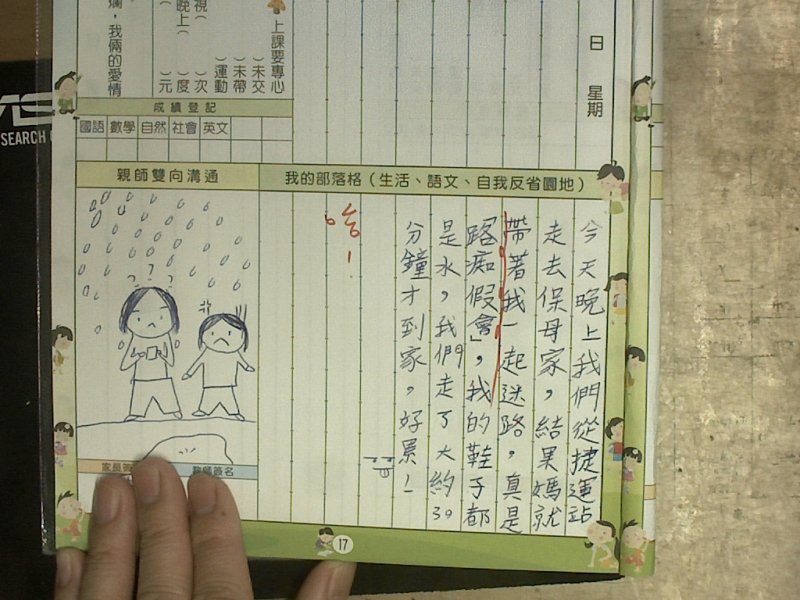 日　星期
上課要專心
）未交
）未帶
）運動
視（　）次
晚上（　）度
（　）元
爛，我倆的愛情
成績登記
國語 數學 自然 社會 英文
親師雙向溝通
我的部落格（生活、語文、自我反省園地）
今天晚上我們從捷運站
走去保母家，結果媽就
帶著我一起迷路，真是
路痴假會」，我的鞋子都
是水，我們走了大約30
分鐘才到家，好累！
哈！
SEARCH
17